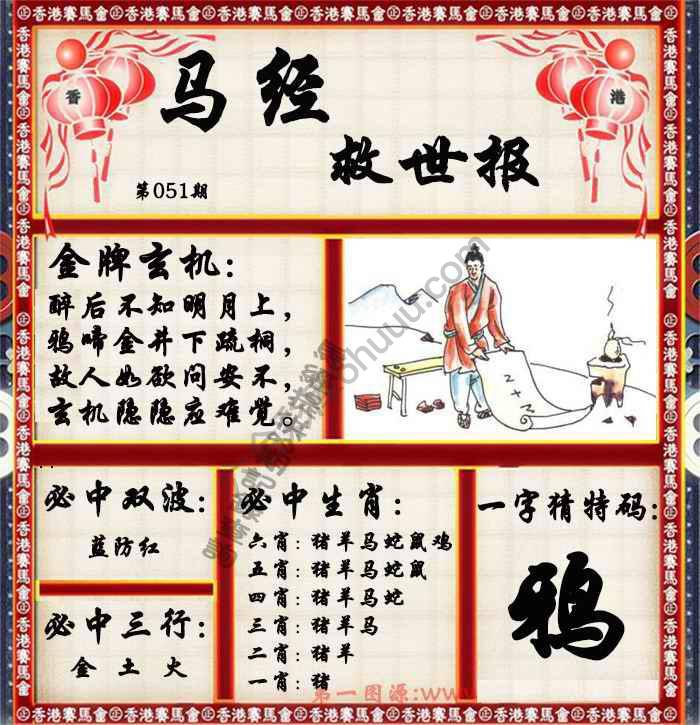 香港賽馬會
香
港
马经
救世报
第051期
金牌玄机:
醉后不知明月上,
鸦啼金井下疏桐,
故人如欲问安不,
玄机隐隐应难觉。
2+2
必中双波:
蓝防红
必中三行:
金 土 火
必中生肖:
六肖:猪羊马蛇鼠鸡
五肖:猪羊马蛇鼠
四肖:猪羊马蛇
三肖:猪羊马
二肖:猪羊
一肖:猪
一字猜特码:
鸦
第一图源:www